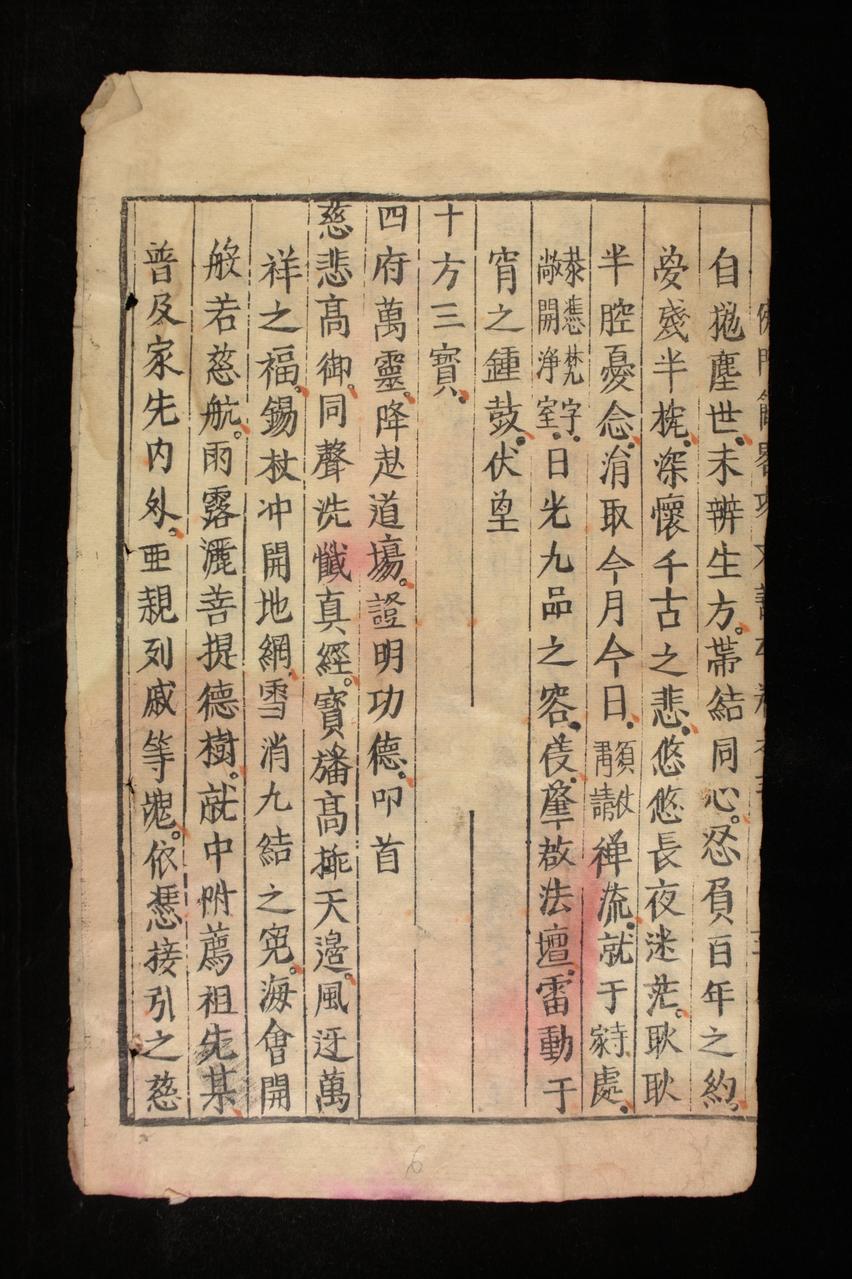 自拋塵世。未辨生方。帶結同心。忍負百年之約。
夢殘半枕。深懷千古之悲。悠悠長夜迷茫。耿耿
半腔憂念。涓取今月今日。須伏再請禅流。就于家寺處。
恭憑梵字。敞開淨室。日光九品之容。爰肇啟法壇。雷動于
宵之鍾鼓。伏望
十方三寶。
四府萬靈。降赴道場。證明功德。叩首
慈悲高御。同聲洗懺真經。寶旛高掛天邊。風迓萬
祥之福。錫杖冲開地網。雪消九結之寃。海會開
般若慈航。雨露灑菩提德樹。就中附薦祖先某
普及家先內外。亜親列戚等魂。依憑接引之慈